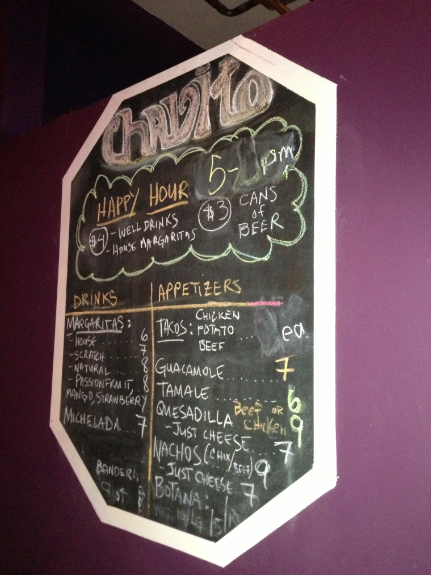 Chavito
HAPPY HOUR 5- pm
$4 - WELL DRINKS
- HOUSE MARGARITAS
$3 CANS
of
BEER
DRINKS
MARGARITAS:
- HOUSE ..... 6
- SCRATCH ..... 7
- NATURAL ..... 8
- PASSIONFRUIT, 8
MANGO, STRAWBERRY
MICHELADA 7
BANDERA
APPETIZERS
TACOS: CHICKEN
POTATO
BEEF
ea.
GUACAMOLE ..... 7
TAMALE ..... 6
QUESADILLA BEEF or CHICKEN 9
- JUST CHEESE 7
NACHOS (CHIX/BEEF) 9
- JUST CHEESE 7
BOTANA: